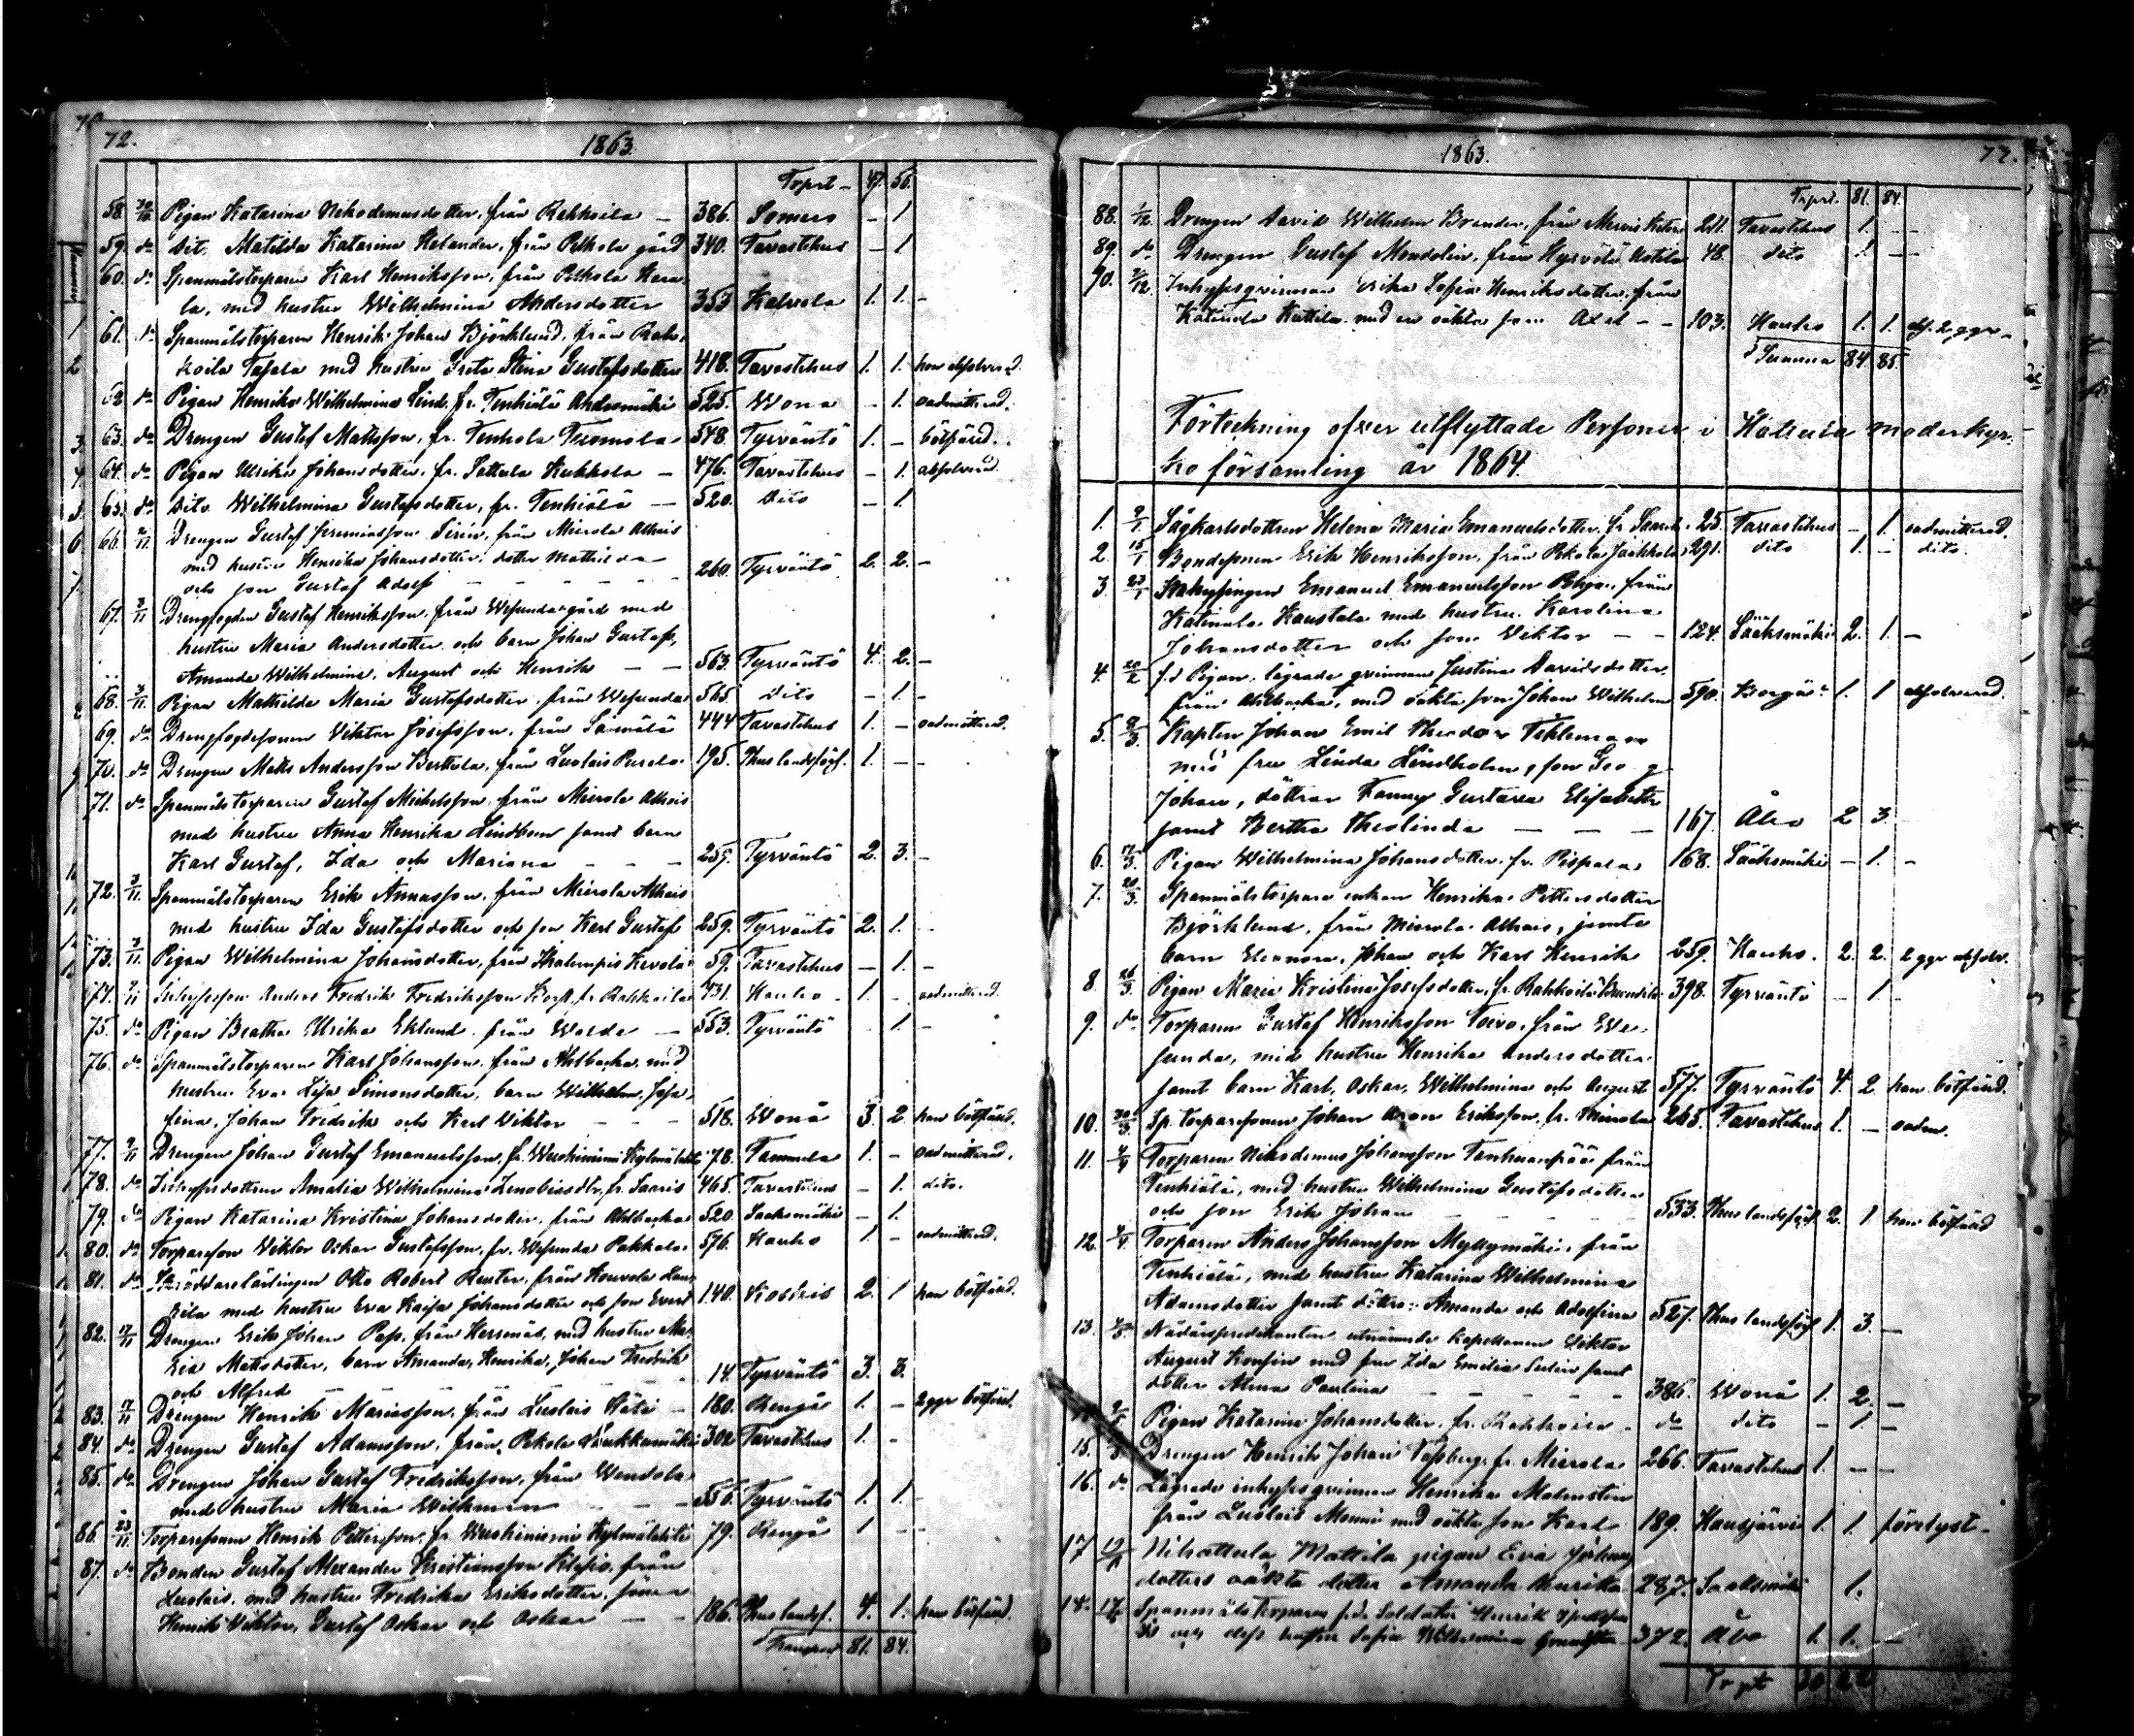 72.
1863.
Trprt - 47. 56.
58. 30/10 Pigan Katarina Nikodemusdotter, från Rahkoila - 386. Somero - 1
59. do Dit. Matilda Katarina Helander, från Pelkola gård 340. Tavastehus - 1
60. do Spanmålstorparen Karl Henriksson, från Pelkola
la, med hustru Wilhelmina Andersdotter 353 Kalvola 1. 1. -
61. do Spanmålstorparen Henrik Johan Björklund, från Rah-
koila Tapala med hustru Greta Stina Gustafsdotter 418. Tavastehus 1. 1. han absolverad.
62 do Pigan Henrika Wilhelmina Lind, fr. Tenhiälä 525. Wona - 1. oadmitterad.
63. do Drengen Gustaf Mattsson, fr. Tenhola Tuomola 548. Tyrväntö 1. - bötfäld.
64. do Pigan Ulrika Johansdotter, fr. Sattula Kukkola - 476. Tavastehus - 1. absolverad.
65. do Dito Wilhelmina Gustafsdotter, fr. Tenhiälä - 520. Dito - 1
66. Drengen Gustaf Jeremiasson Sirén, från Mierola Alhais
med hustru Henrika Johansdotter, dotter Mathilda
och son Gustaf Adolf - - - 260. Tyrväntö 2. 2. -
67. Drengfogden Gustaf Henriksson, från Wesunda gård med
hustru Maria Andersdotter och barn Johan Gustaf,
Amanda Wilhelmina, August och Henrik - - 563. Tyrväntö 4. 2. -
68. Pigan Mathilda Maria Gustafsdotter, från Wesunda 565 dito - 1. -
69. do Drengfogdesonen Viktor Josefsson, från 444 Tavastehus 1. - oadmitterad.
70. do Drengen Matts Andersson Perttula, från Luolais Purala 195. Thus landsförs. 1. -
71. do Spanmålstorparen Gustaf Michelsson, från Mierola Alhais
med hustru Anna Henrika Lindhem samt barn
Karl Gustaf, Ida och Mariana - - - 259. Tyrväntö 2. 3. -
72. 3/11. Spanmålstorparen Erik Annasson, från Mierola Alhais
med hustru Ida Gustafsdotter och son Karl Gustaf 259. Tyrväntö 2. 1. -
73. 3/11. Pigan Wilhelmina Johansdotter, från Katumpis Kevola 59. Tavastehus - 1. -
74. Inhysesson Anders Fredrik Fredriksson fr. Rahkoila 431. Hauho 1. - oadmitterad.
75. do Pigan Beatha Ulrika Eklund från Walde - 553. Tyrväntö 1. -
76. do Spanmålstorparen Karl Johansson, från Ahlbacka, med
hustru Eva Lisa Simonsdotter, barn Wilhelm, Jose-
fina, Johan Fredrik och Karl Viktor - - - 518. Wonå 3. 2 han bötfäld.
77. Drengen Johan Gustaf Emanuelsson, fr. Wuohiniemi Kylmälahti 78. Tammela 1. - oadmitterad.
78. do Inhysesdottren Amalia Wilhelmina Zenobiasdtr, fr. Saaris 465. Tavastehus - 1. dito.
79. do Pigan Katarina Kristina Johansdotter, från Ahlbacka 520. Sääksmäki - 1.
80. do Torpareson Viktor Oskar Gustafsson, fr. Wesunda Pakkala 576. Hauho 1 - oadmitterad.
81. do Skräddarelärlingen Otto Robert Reuter, från
kila med hustru Eva Kaisa Johansdotter och son Evert 140. Koskis 2. 1 han bötfäld.
82. 17/11 Drengen Erik Johan Pass, från Herrnäs, med hustru Ma-
ria Mattsdotter, barn Amanda, Henrika, Johan Fredrik
och Alfred - - - 14. Tyrväntö 3. 3.
83. 17/11 Drengen Henrik Mariasson, från Luolais - 180. Rengå 1. - 2 ggr bötfäld.
84. do Drengen Gustaf Adamsson, från Pekola 302 Tavastehus 1. -
85. do Drengen Johan Gustaf Fredriksson, från Wendola
med hustru Maria Wickman - - 556. Tyrväntö 1. 1. -
86. 23/11. Torparesonen Henrik Pettersson, fr. Wuohiniemi Kylmälahti 79. Rengå 1 -
87. do Bonden Gustaf Alexander Kristiansson från
Luolais, med hustru Fredrika Eriksdotter, söner
Henrik Viktor, Gustaf Oskar och Oskar - - 186. Thus landsf. 4. 1. han bötfäld.
Transport 81. 84.
1863.
Trprt. 81. 84.
88. 1/12 Drengen David Wilhelm Brander, från Mervis 211. Tavastehus 1. -
89. do Drengen Gustaf Mondolin, från Hyrvälä Uotila 48. dito 1. -
90. Inhysesqvinnan Ulrika Sofia Henriksdotter, från
Katinala Kattila med en oäkta son Axel - - 103. Hauho 1. 1. abs. 2 ggr
Summa 84. 85.
Förteckning öfver utflyttade Personer i Hattula moderkyr-
ko församling år 1864.
1. Helena Maria Emanuelsdotter, fr Saaris 25. Tavastehus - 1. oadmitterad.
2. 15/1 Bondesonen Erik Henriksson, från Pekola Jaakkola 291. dito 1. - dito.
3. 27/1 Emanuel Emanuelsson från
Katinala Kaustala med hustru Karolina
Johansdotter och son Viktor - - 124. Sääksmäki 2. 1. -
4. 20/2 f.d. Pigan, lägrade qvinnan Justina Davidsdotter
från Ahlbacka, med oäkta son Johan Wilhelm 590. Borgå 1. 1 absolverad.
5. 8/3. Kapten Johan Emil Theodor Teklemann
med fru Linda Lindholm, son Georg
Johan, döttrar Fanny Gustava Elisabeth
samt Bertha Theolinda - - - 167. Åbo 2 3
6. 17/3. Pigan Wilhelmina Johansdotter, fr. Pispala 168. Sääksmäki - 1. -
7. 20/3. Spanmålstorpare enkan Henrika Pettersdotter
Björklund, från Mierola Alhais, jemte
barn Eleonora, Johan och Karl Henrik 259. Hauho. 2. 2. 2 ggr absolv.
8 26/3. Pigan Maria Kristina Josefsdotter, fr. Rahkoila 398. Tyrväntö - 1. -
9. do Torparen Gustaf Henriksson Toivo, från We-
sunda, med hustru Henrika Andersdotter
samt barn Karl, Oskar, Wilhelmina och August 577. Tyrväntö 4. 2. han bötfäld.
10. 30/3. Sp. torparesonen Johan Aron Eriksson, fr. Mierola 265. Tavastehus 1. - oadm.
11. 4/4 Torparen Nikodemus Johansson Tanhuanpää från
Tenhiälä, med hustru Wilhelmina Gustafsdotter
och son Erik Johan - - - 533. Thus landsförs. 2. 1. han bötfäld
12. Torparen Anders Johansson Myllymäki, från
Tenhiälä, med hustru Katarina Wilhelmina
Adamsdotter samt döttrar Amanda och Adolfina 527. Thus landsförs. 1. 3. -
13. Nådårspredikanten utnämnde kapellanen Viktor
August med fru Ida Emilia samt
dotter Alma Paulina - - - 386. Wonå 1. 2. -
Pigan Katarina Johansdotter, fr. Rahkoila - do dito - 1. -
15. Drengen Henrik Johan fr. Mierola 266. Tavastehus 1. - -
16. do Lägrade inhysesqvinnan Henrika Malmsten
från Luolais Monni med oäkta son Karl 189. Hausjärvi 1. 1. förelyst -
17 Nihattula Mattila pigan Eva Johans
dotters oäkta dotter Amanda Henrika 287. Sääksmäki 1.
18. Spanmåls torparen f.d. Soldaten Henrik
och dess hustru Sofia Wilhelmina 372. Åbo 1. 1. -
Trprt 30 22